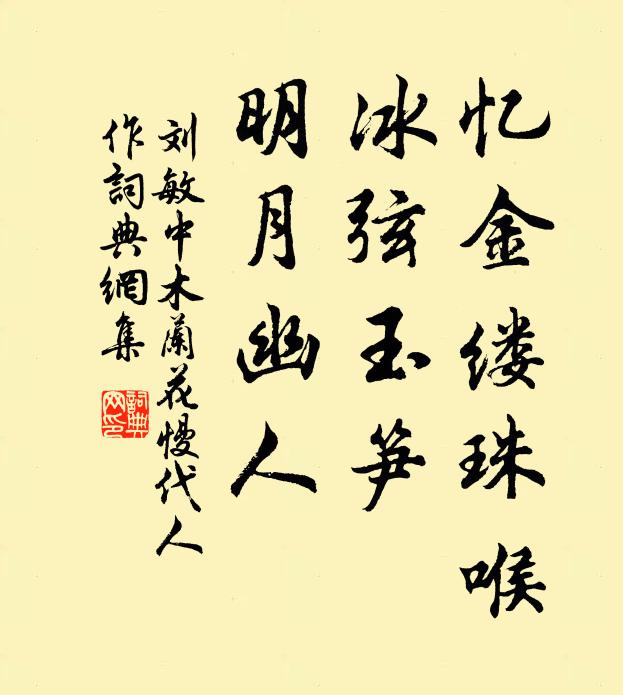 忆金缕珠喉
冰弦玉笋
明月幽人
刘敏中木蘭花慢代人
作詞典網集
詞典
网印